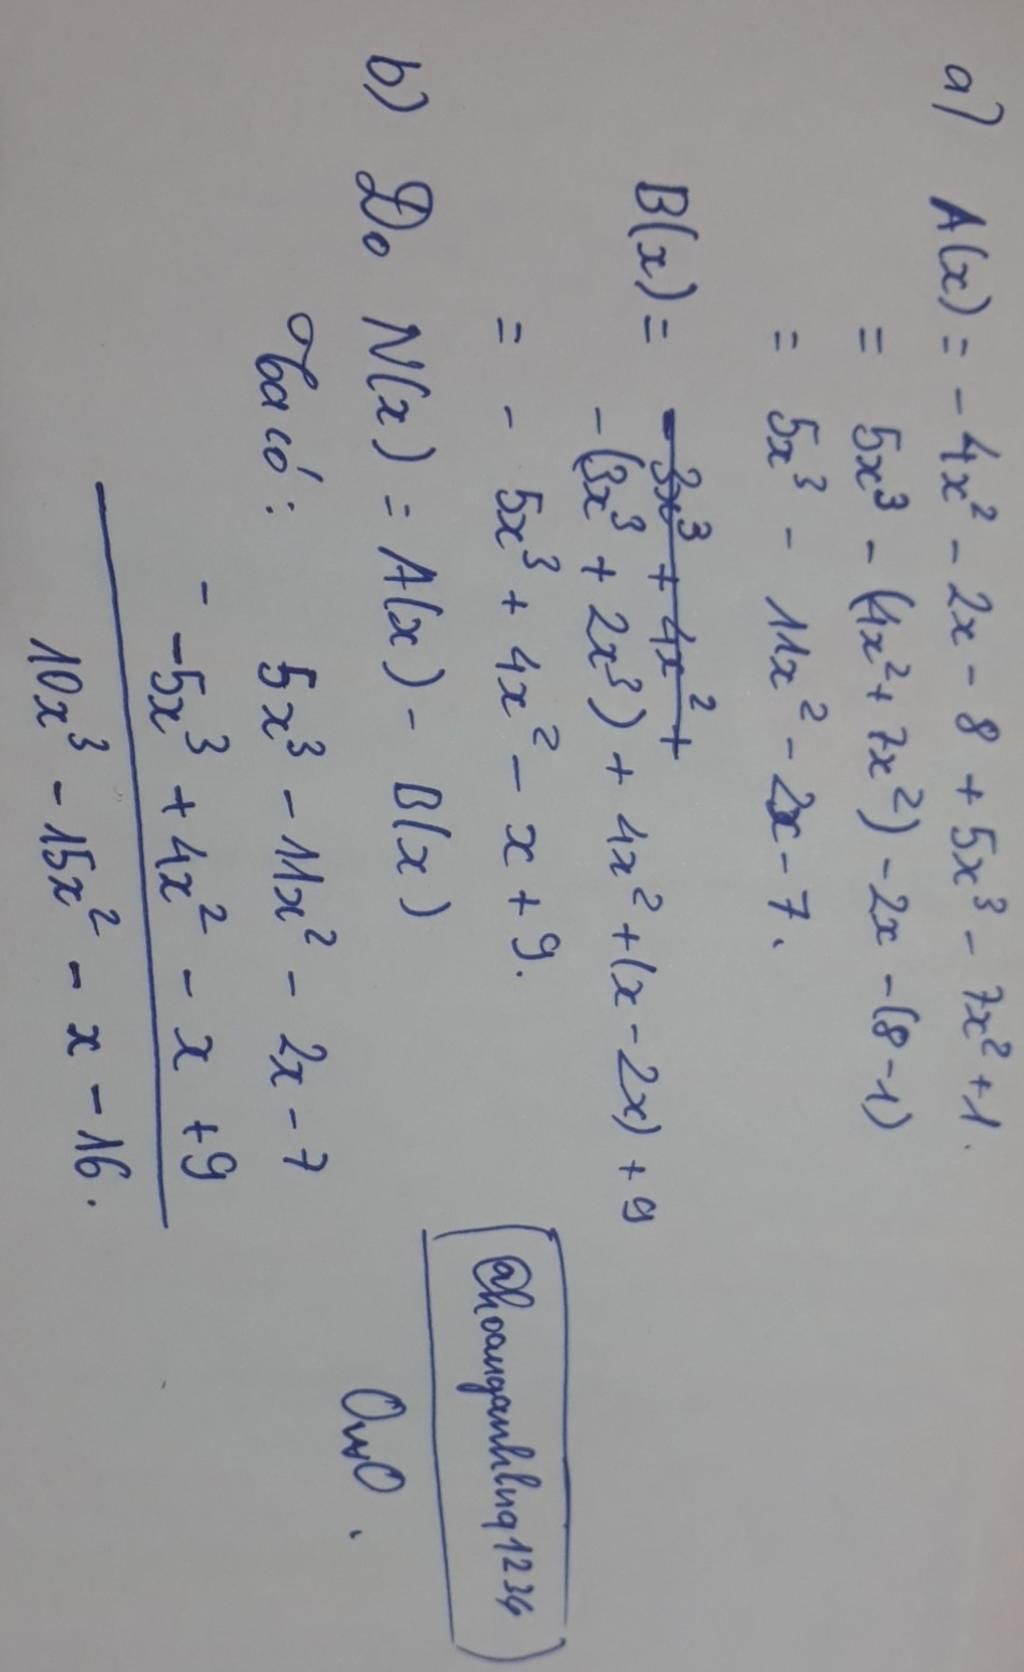 a) A(x) = - 4x² - 2x - 8 + 5x³ - 7x² + 1.
= 5x³ - (4x² + 7x²) - 2x - (8 - 1)
= 5x³ - 11x² - 2x - 7.
B(x) = - 3x³ + 4x² +
- (3x³ + 2x³) + 4x² + (x - 2x) + 9
= - 5x³ + 4x² - x + 9.
b) Do N(x) = A(x) - B(x)
Ta có:
5x³ - 11x² - 2x - 7
-
-5x³ + 4x² - x + 9
10x³ - 15x² - x - 16.
@hoanganhlnq1234
OwO.